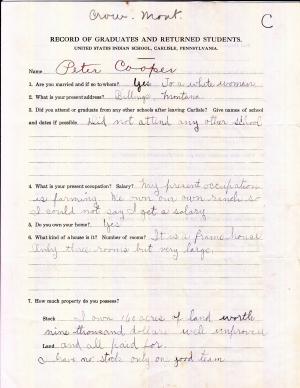 Crow. Mont.
C
RECORD OF GRADUATES AND RETURNED STUDENTS.
UNITED STATES INDIAN SCHOOL, CARLISLE, PENNSYLVANIA.
Name Peter Cooper
1. Are you married and if so to whom? Yes To a white woman
2. What is your present address? Billings, Montana
3. Did you attend or graduate from any other schools after leaving Carlisle? Give names of school
and dates if possible. Did not attend any other school
4. What is your present occupation? Salary? My present occupation
is farming. We own our own ranch so
I could not say I get a salary
5. Do you own your home? Yes
6. What kind of a house is it? Number of rooms? It is a frame house
Only three rooms but very large.
7. How much property do you possess?
Stock I own 160 acres of land worth
nine thousand dollars well improved
Land and all paid for.
I have no stock only on good team